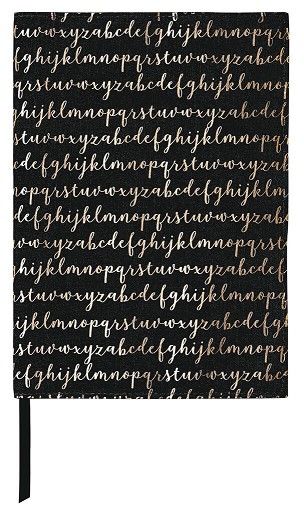 tuvwxyzabcdefghijklmnopqrs
fghijklmnopqrstuvwxyzabcde
qrstuvwxyzabcdefghijklmno
cdefghijklmnopqrstuvwxyza
nopqrstuvwxyzabcdefghijkl
zabcdefghijklmnopqrstuvwxy
opqrstuvwxyzabcdefghijklm
defghijklmnopqrstuvwxyzabc
uvwxyzabcdefghijklmnopqr
ghijklmnopqrstuvwxyzabcdef
qrstuvwxyzabcdefghijklmno
ijklmnopqrstuvwxyzabcdefg
wxyzabcdefghijklmnopqrstu
fghijklmnopqrstuvwxyzabcd